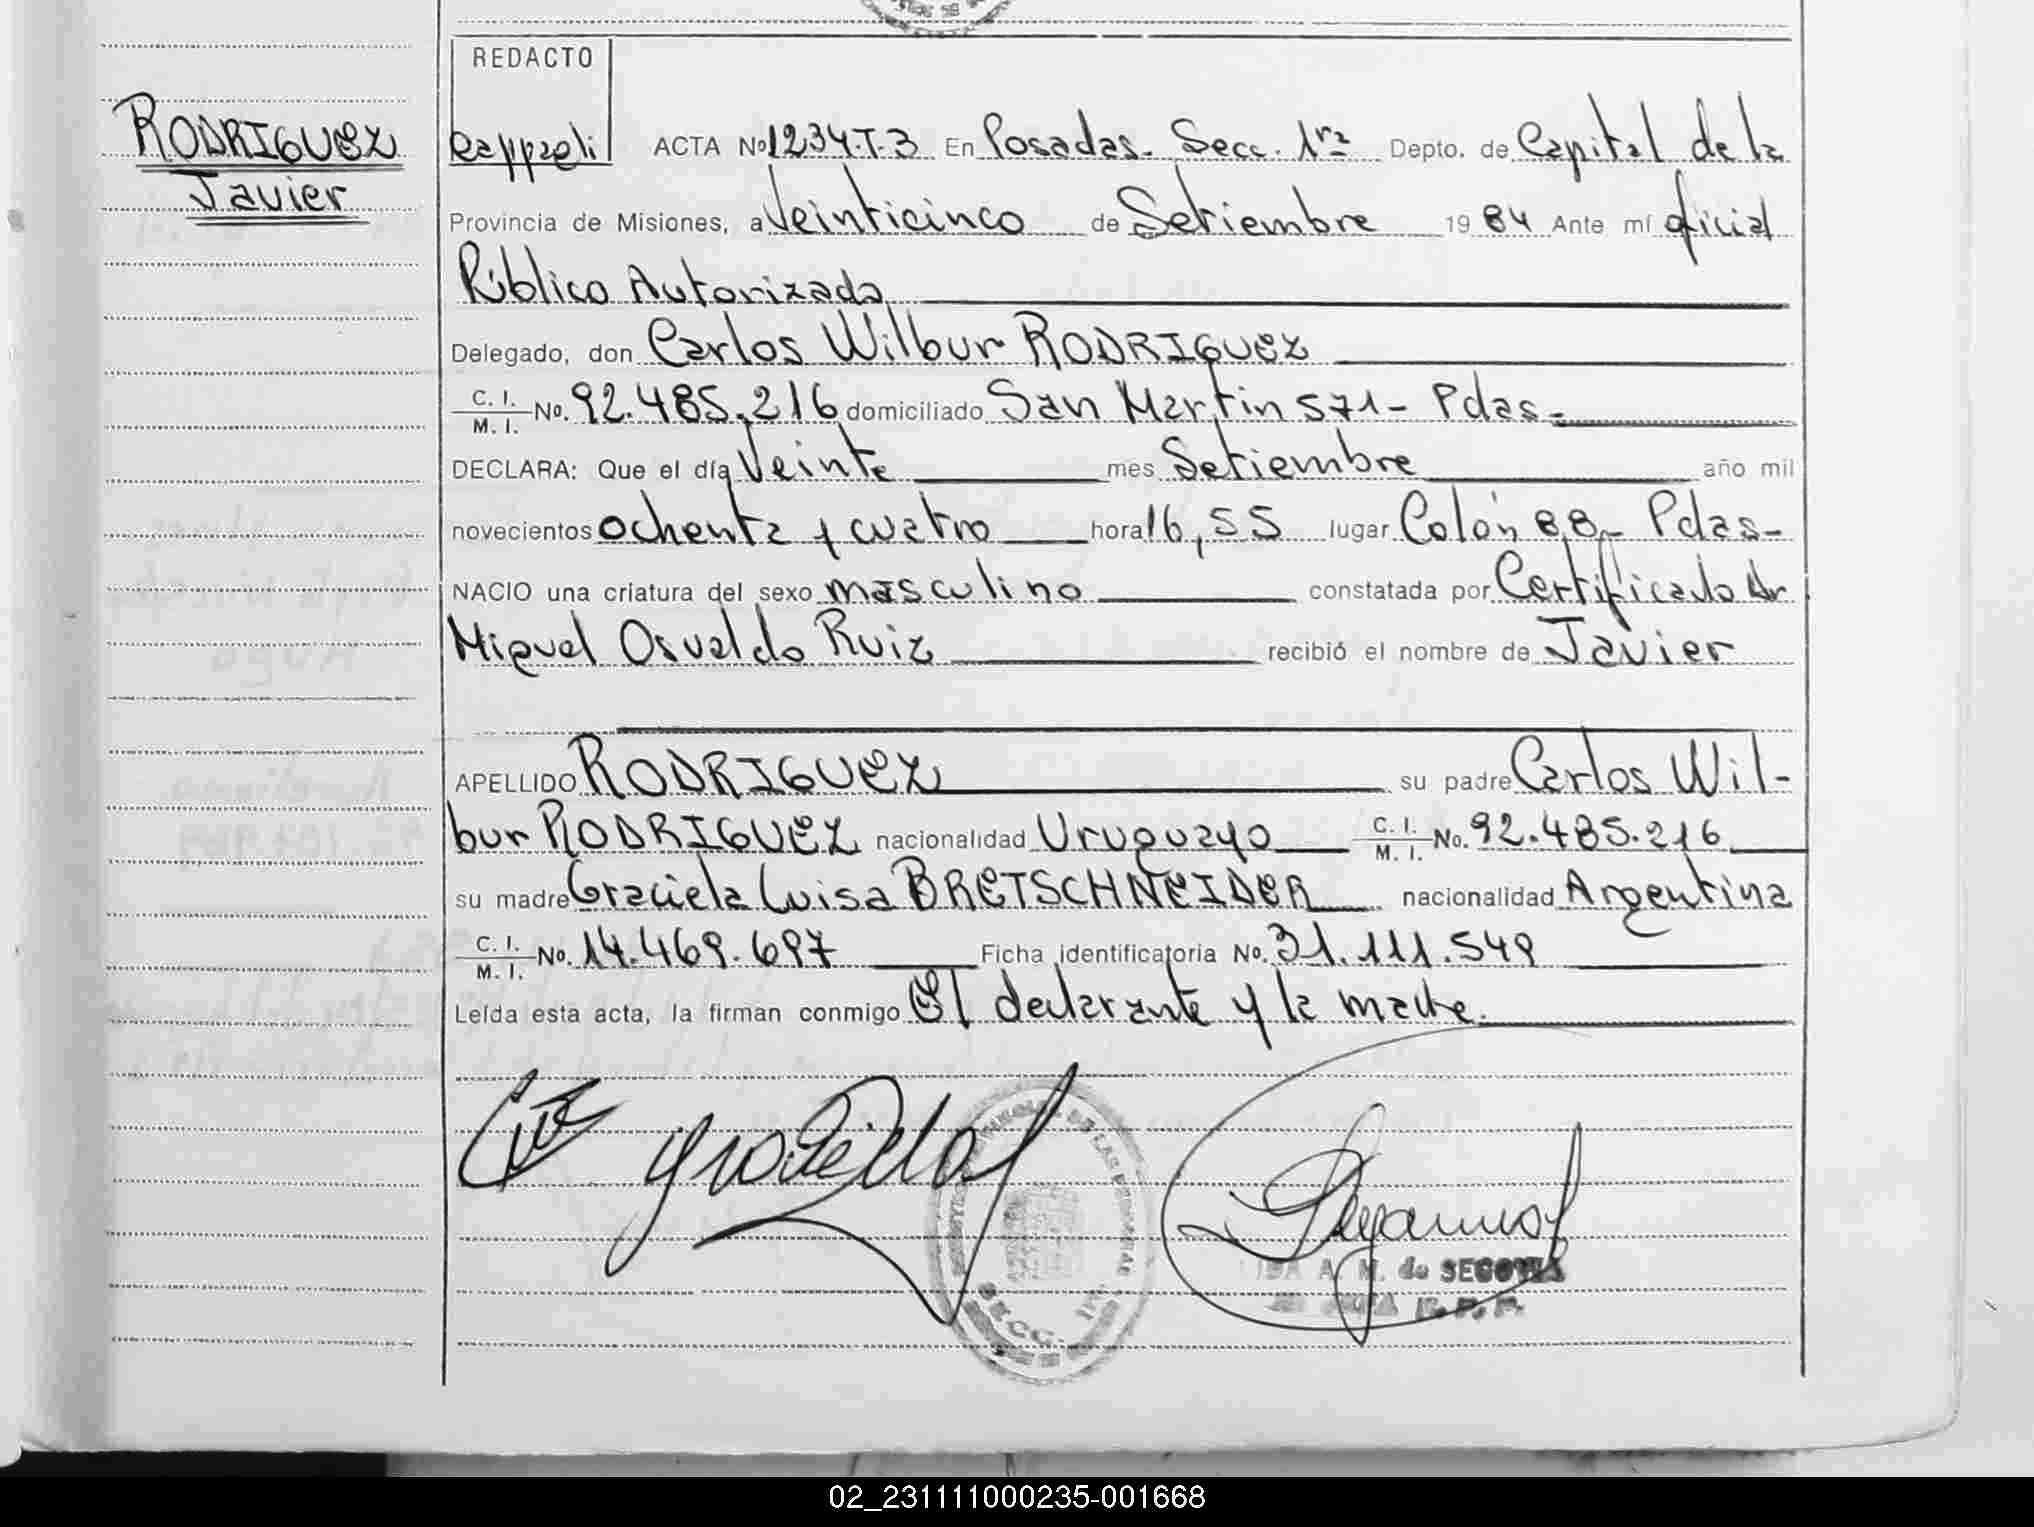 REDACTO
RODRIGUEZ
Javier
Cappaeli ACTA Nº 1234.T.3 En Posadas. Secc. 1ra Depto. de Capital de la
Provincia de Misiones, a Veinticinco de Setiembre 19 84 Ante mí oficial
Público Autorizado
Delegado, don Carlos Wilbur RODRIGUEZ
C. I. M. I. No. 92.485.216 domiciliado San Martin 571- Pdas-
DECLARA: Que el día Veinte mes Setiembre año mil
novecientos ochenta y cuatro hora 16,55 lugar Colón 88- Pdas-
NACIO una criatura del sexo masculino constatada por Certificado Dr
Miguel Osvaldo Ruiz recibió el nombre de Javier
APELLIDO RODRIGUEZ su padre Carlos Wil-
bur RODRIGUEZ nacionalidad Uruguayo C. I. M. I. No. 92.485.216
su madre Graciela Luisa BRETSCHNEIDER nacionalidad Argentina
C. I. M. I. No. 14.469.697 Ficha identificatoria No. 31.111.549
Leída esta acta, la firman conmigo El declarante y la madre.
DE LAS PERSONAS
SECC.
A. M. de SEGOVIA
02_231111000235-001668